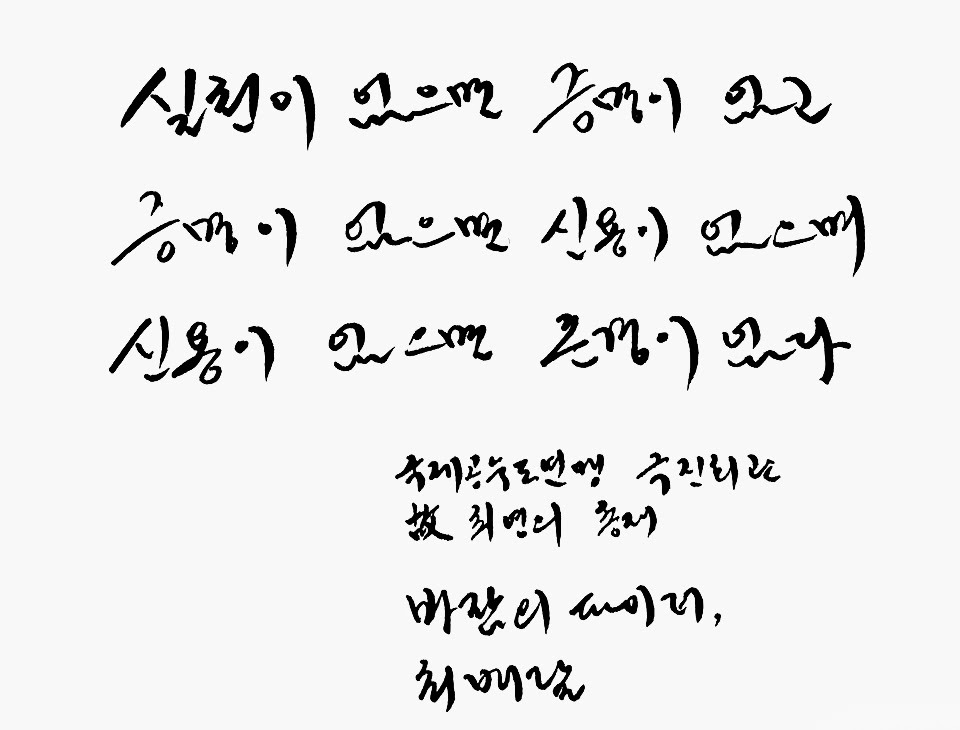 실천이 없으면 증명이 없고
증명이 없으면 신용이 없으며
신용이 없으면 존경이 없다
국제공수도연맹 극진회관
故 최영의 총재
바람의 파이터,
최배달